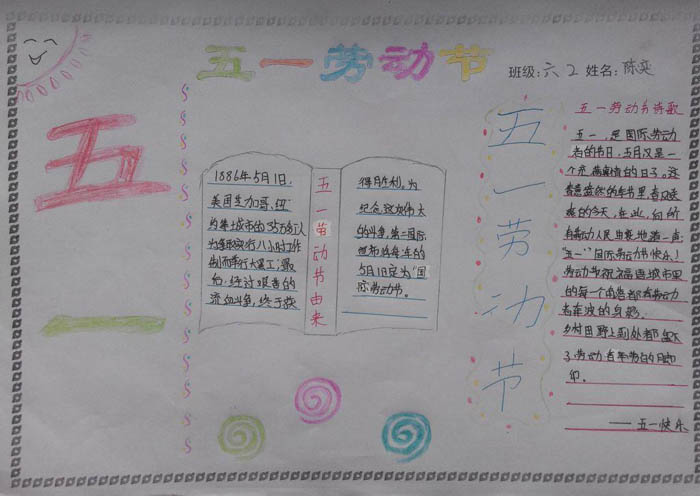 五一劳动节
班级:六2 姓名:陈奕
五
一
1886年5月1日,
美国芝加哥、纽
约等城市的35万名工人
为争取实行八小时工作
制而举行大罢工,最
后,经过艰苦的
流血斗争,终于获
五一劳动节由来
得胜利。为
纪念这次伟大
的斗争,第二国际
5月1日定为“国
际劳动节。
五一劳动节
五一劳动节诗歌
五一,是国际劳动
者的节日,5月又是一
个充满
的今天,在此,向所
有劳动人民由衷地道一声:
“五一”国际劳动节快乐!
劳动节祝福
的每个角落都有劳动
者
乡村田野上到处都留下
了劳动者辛劳的脚
印。
——五一快乐